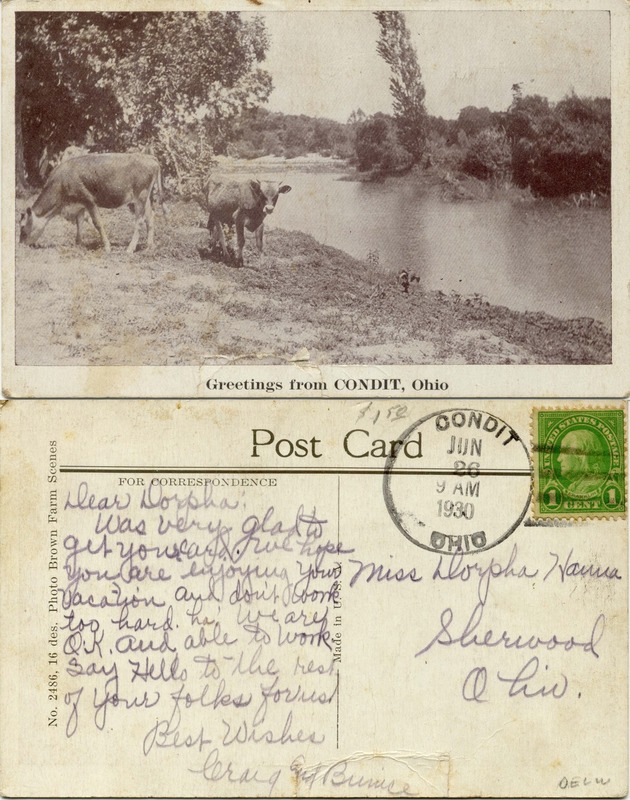 Greetings from CONDIT, Ohio
$1.50
Post Card
FOR CORRESPONDENCE
CONDIT
JUN
26
9 AM
1930
OHIO
UNITED STATES POSTAGE
1 CENT 1
No. 2486, 16 des. Photo Brown Farm Scenes
Made in U.S.A.
Dear Dorpha:
Was very glad to
get your card. We hope
you are enjoying your
vacation and dont work
too hard. ha! We are
O.K. and able to work.
Say Hello to the rest
of your folks for us!
Best Wishes
Craig and Bunice
Miss Dorpha Hanna
Sherwood
Ohio.